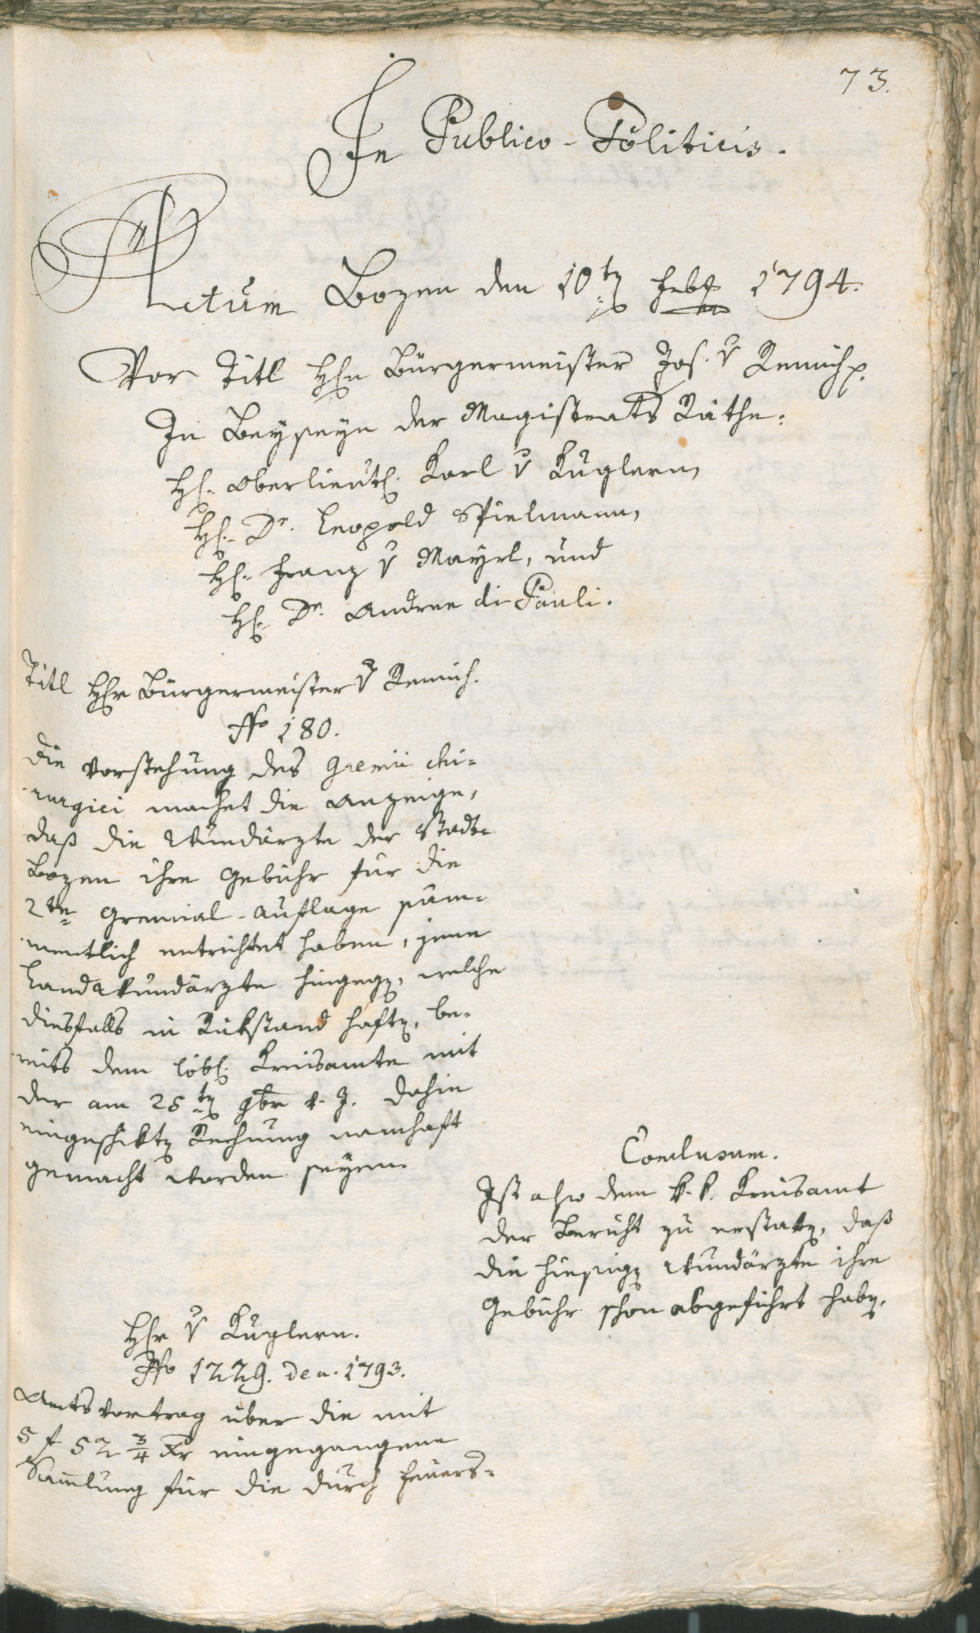 73.
In Publico-Politicis.
Actum Bozen den 10tn Febr 1794.
Vor Titl Hrn Bürgermeister Jos. v Remich p.
In Beyseyn der Magistrats Räthe:
Hr. Oberlieut. Karl v Kuglern,
Hr. Dr. Leopold Spielmann,
Hr. Franz v Mayrl, und
Hr. Dr. Andree di Pauli.
Titl Hr Bürgermeister v Remich.
No 180.
Die Vorstehung des Gremii chi-
rurgici machet die Anzeige,
daß die Wundärzte der Stadt
Bozen ihre Gebühr für die
2te Gremial-Auflage säm-
mentlich entrichtet haben, jene
Landwundärzte hingegn, welche
diesfalls in Rükstand haftn, be-
reits dem löbl. Kreisamte mit
der am 25tn 9br v. J. dahin
eingeschiktn Rechnung namhaft
gemacht worden seyen.
Conclusum.
Ist also dem k.k. Kreisamt
der Bericht zu erstattn, daß
die hiesign Wundärzte ihre
Gebühr schon abgeführt habn.
Hr v Kuglern.
No 1229. de a. 1793.
Amtsvortrag über die mit
5 f 52 3/4 xr eingegangene
Samlung für die durch Feuers-